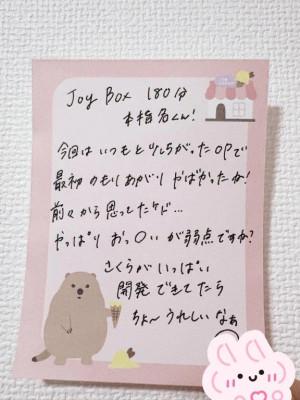 Joy Box 180分
本指名くん!
今回はいつもと少しちがったopで
最初のもりあがりやばかったか!
前々から思ってたケド...
やっぱりおっ○いが弱点ですか?
さくらがいっぱい
開発できてたら
ちょ〜うれしいなぁ